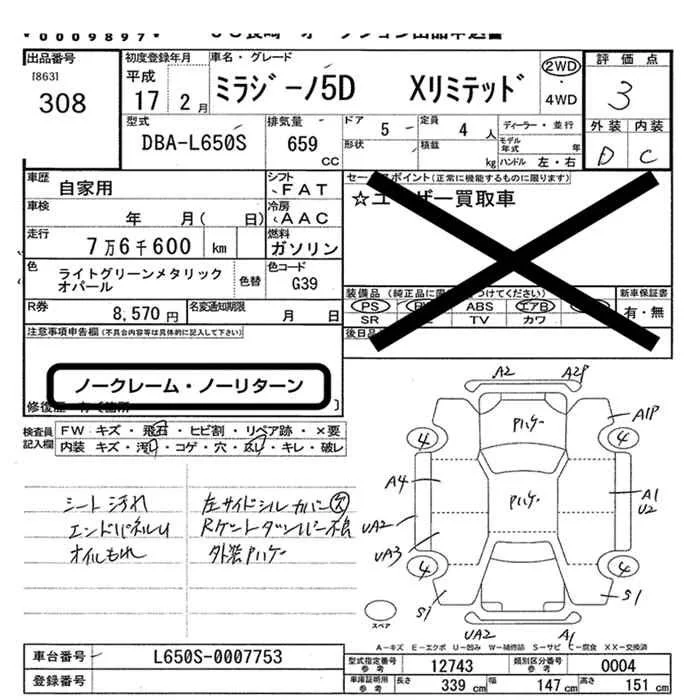 *0009897*
出品番号
[863]
308
初度登録年月
平成
17 2 月
車名・グレード
ミラジーノ5D Xリミテッド
2WD
・
4WD
評価点
3
外装 内装
D C
型式
DBA-L650S
排気量
659
CC
ドア 5
形状
定員 4 人
積載 kg
ディーラー・並行
モデル年式 年
ハンドル 左・右
車歴
自家用
シフト
FAT
車検
年 月( 日)
冷房
AAC
走行
7万6千600 km
燃料
ガソリン
色
ライトグリーンメタリック
オパール
色替
色コード
G39
R券
8,570 円
名変通知期限
月 日
セールスポイント(正常に機能するものに限ります)
☆ユーザー買取車
装備品
PS ABS エアB
SR TV カワ
新車保証書
有・無
後日品
注意事項申告欄(不具合内容等は具体的に記入して下さい)
ノークレーム・ノーリターン
修復歴
検査員
記入欄
FW キズ・飛石・ヒビ割・リペア跡・×要
内装 キズ・汚れ・コゲ・穴・スレ・キレ・破レ
シート汚れ
エンドパネルU
オイルもれ
左サイドシルカバー欠
Rゲートダンパー不良
外装Pハゲ
A2 A2P
Pハゲ A1P
4 4
A4 Pハゲ A1
U2
UA2
UA3
4 4
S1 S1
スペア
UA2 A1
A-キズ E-エクボ U-凹み W-補修跡 S-サビ C-腐食 XX-交換済
車台番号 L650S-0007753
登録番号
型式指定番号
参考
12743
類別区分番号
参考
0004
車庫証明用
参考
長さ 339 cm 幅 147 cm 高さ 151 cm